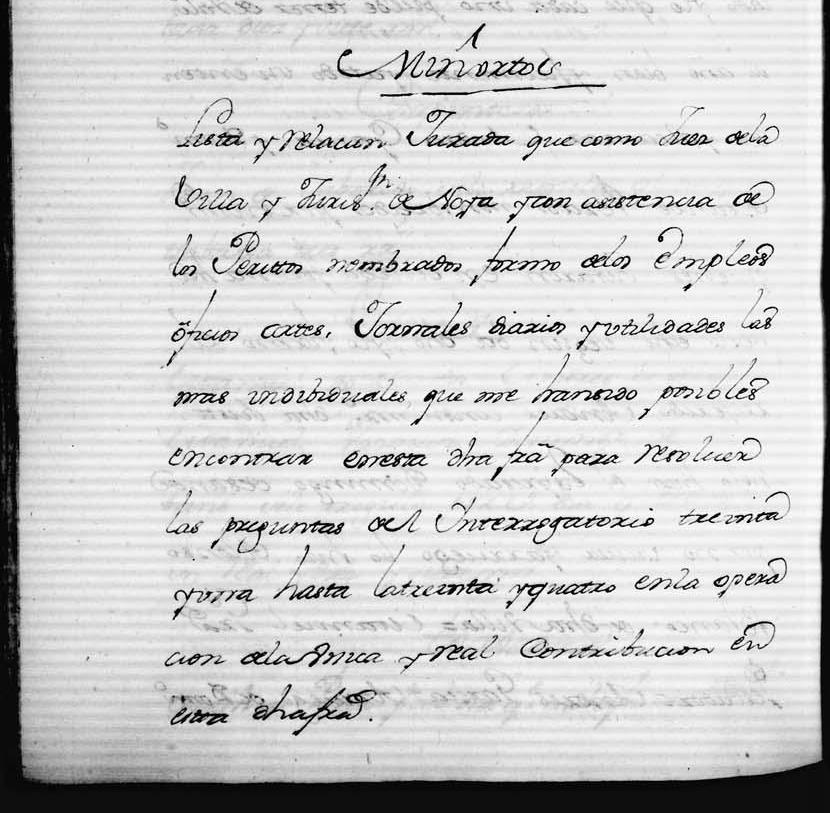 Miñortos
Lista y relacion Jurada que como Juez dela
Villa y Jurisᵒⁿ de Noya y con asistencia de
los Peritos nombrados formo delos Empleos
ofizios artes, Jornales diarios y utilidades las
mas indibiduales que me hansido posibles
encontrar enesta dha fra para resolver
las preguntas del Ynterrogatorio treinta
yuna hasta latreinta yquatro enla opera
cion dela Unica y real Contribucion en
esta dhafra.